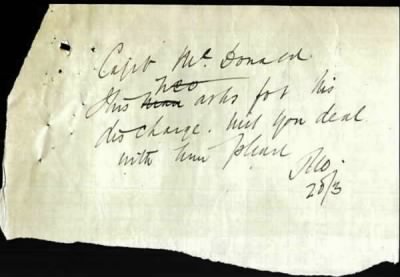 Capt Mc Donald
NCO
this man asks for his
discharge. Will you deal
with him please
20/3